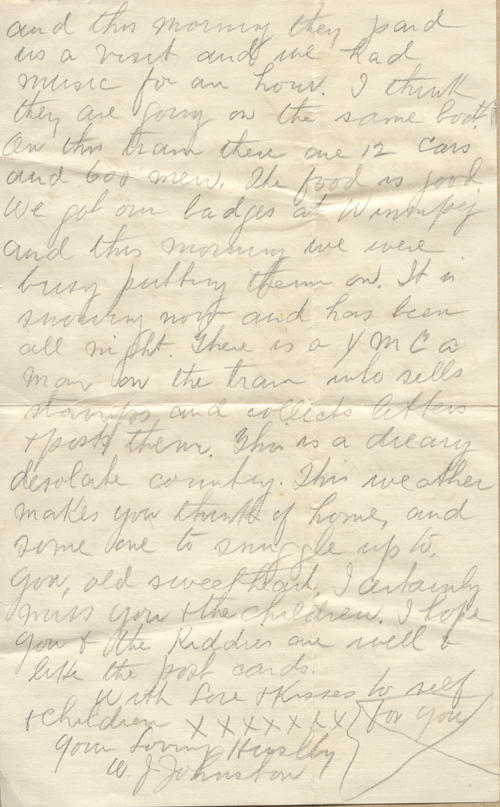 and this morning they paid
us a visit and we had
music for an hour. I think
they are going on the same boat.
On this train there are 12 cars
and 600 men. The food is good.
We got our badges at Winnipeg
and this morning we were
busy putting them on. It is
snowing now and has been
all night. There is a Y M C a
man on the train who sells
stamps and collects letters
& posts them. This is a dreary
desolate country. This weather
makes you think of home, and
some one to snuggle up to,
you, old sweetheart, I certainly
miss you & the children. I hope
you & the Kiddies are well &
like the post cards.
With Love & Kisses to self
& children X X X X X X X for you
Your Loving Hubby
W. J Johnston